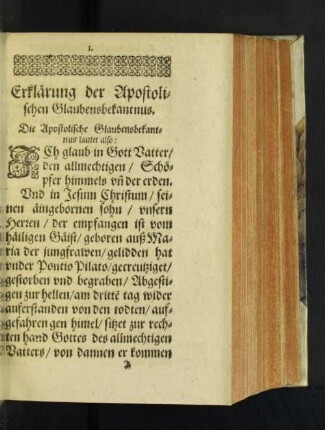 1.
Erklärung der Apostoli-
schen Glaubensbekantnus.
Die Apostolische Glaubensbekant-
nus lautet also:
ICh glaub in Gott Vatter/
den allmechtigen / Schö-
pfer himmels vn̄ der erden.
Vnd in Jesum Christum / sei-
nen äingebornen sohn / vnsern
Herren / der empfangen ist vom
häiligen Gäist / geboren auß Ma-
ria der jungfrawen / gelidden hat
vnder Pontio Pilato / gecreutziget /
gestorben vnd begraben / Abgesti-
gen zur hellen / am drittē tag wider
aufferstanden von den todten / auf-
gefahren gen himel / sitzet zur rech-
ten hand Gottes des allmechtigen
Vatters / von dannen er kommen
A